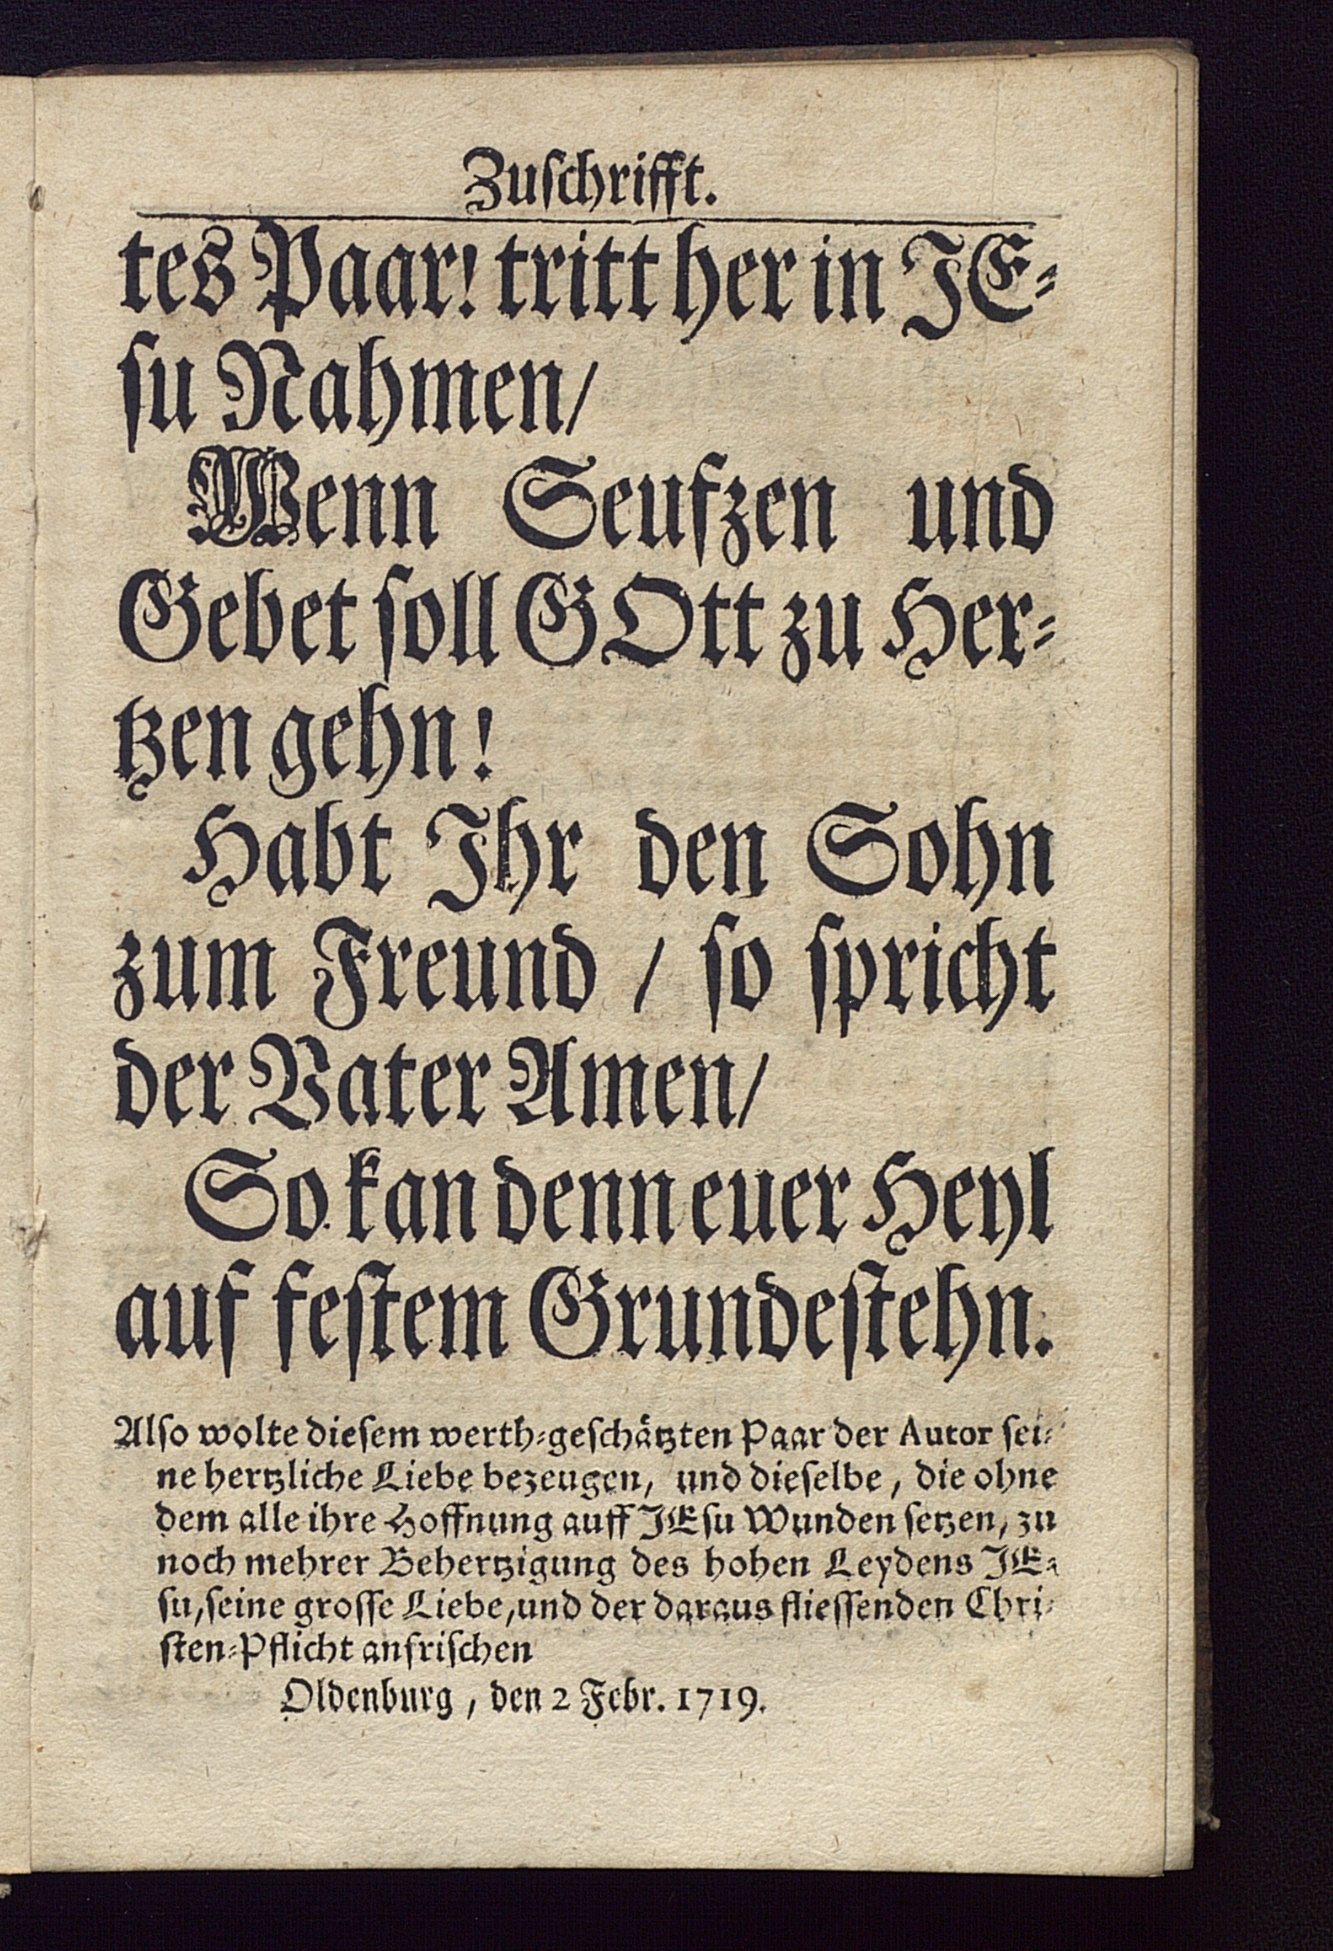 Zuſchrifft.
tes Paar! tritt her in JE-
ſu Nahmen/
Wenn Seufzen und
Gebet ſoll GOtt zu Her-
tzen gehn!
Habt Ihr den Sohn
zum Freund / ſo ſpricht
der Vater Amen/
So kan denn euer Heyl
auf feſtem Grunde ſtehn.
Alſo wolte dieſem werth-geſchätzten Paar der Autor ſei-
ne hertzliche Liebe bezeugen, und dieſelbe, die ohne
dem alle ihre Hoffnung auff JEſu Wunden ſetzen, zu
noch mehrer Behertzigung des hohen Leydens JE-
ſu, ſeine groſſe Liebe, und der daraus flieſſenden Chri-
ſten-Pflicht anfriſchen
Oldenburg, den 2 Febr. 1719.